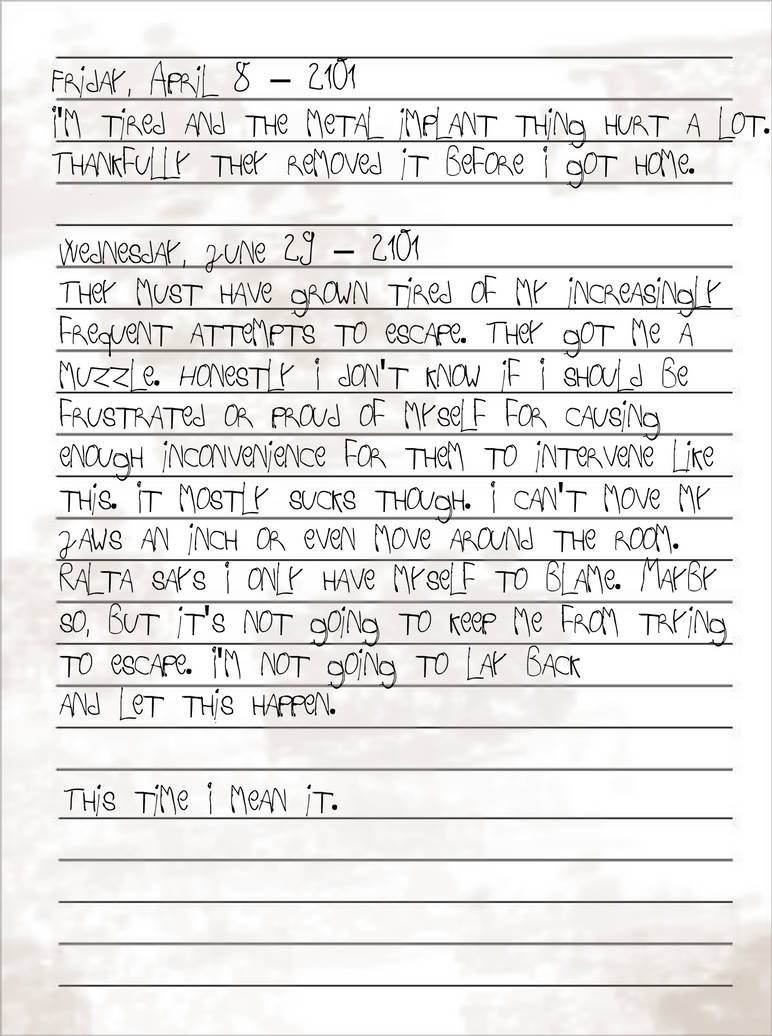 Friday, April 8 – 2101
I'm tired and the metal implant thing hurt a lot.
Thankfully they removed it before I got home.
Wednesday, June 29 – 2101
They must have grown tired of my increasingly
frequent attempts to escape. They got me a
muzzle. Honestly I don't know if I should be
frustrated or proud of myself for causing
enough inconvenience for them to intervene like
this. It mostly sucks though. I can't move my
jaws an inch or even move around the room.
Ralta says I only have myself to blame. Mayby
so, but it's not going to keep me from trying
to escape. I'm not going to lay back
and let this happen.
This time I mean it.